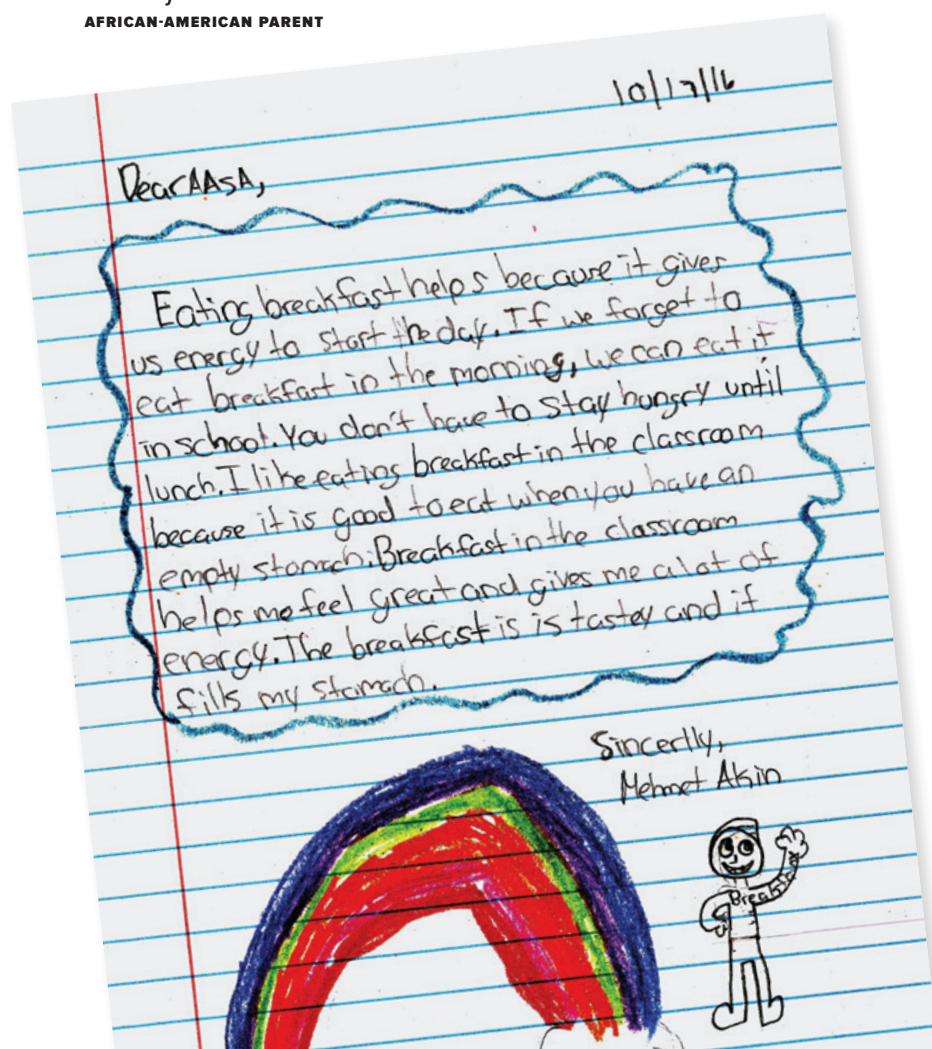 AFRICAN-AMERICAN PARENT
10/17/16
Dear AASA,
Eating breakfast helps because it gives
us energy to start the day. If we forget to
eat breakfast in the morning, we can eat it
in school. You don't have to stay hungry until
lunch. I like eating breakfast in the classroom
because it is good to eat when you have an
empty stomach. Breakfast in the classroom
helps me feel great and gives me a lot of
energy. The breakfast is is tastey and it
fills my stomach.
Sincertly,
Mehmet Akin